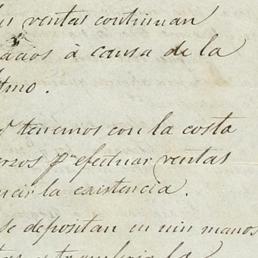 ventas continuan
acios á causa de la
tmo.
tenemos con la costa
erzos pr efectuar ventas
ucir la existencia.
se depositan en min manos
la